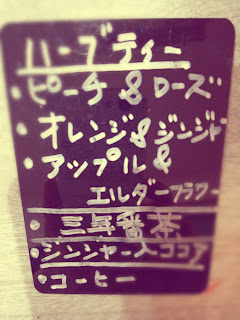 ハーブティー
・ピーチ&ローズ
・オレンジ&ジンジャー
・アップル&
エルダーフラワー
・三年番茶
・ジンジャー入ココア
・コーヒー